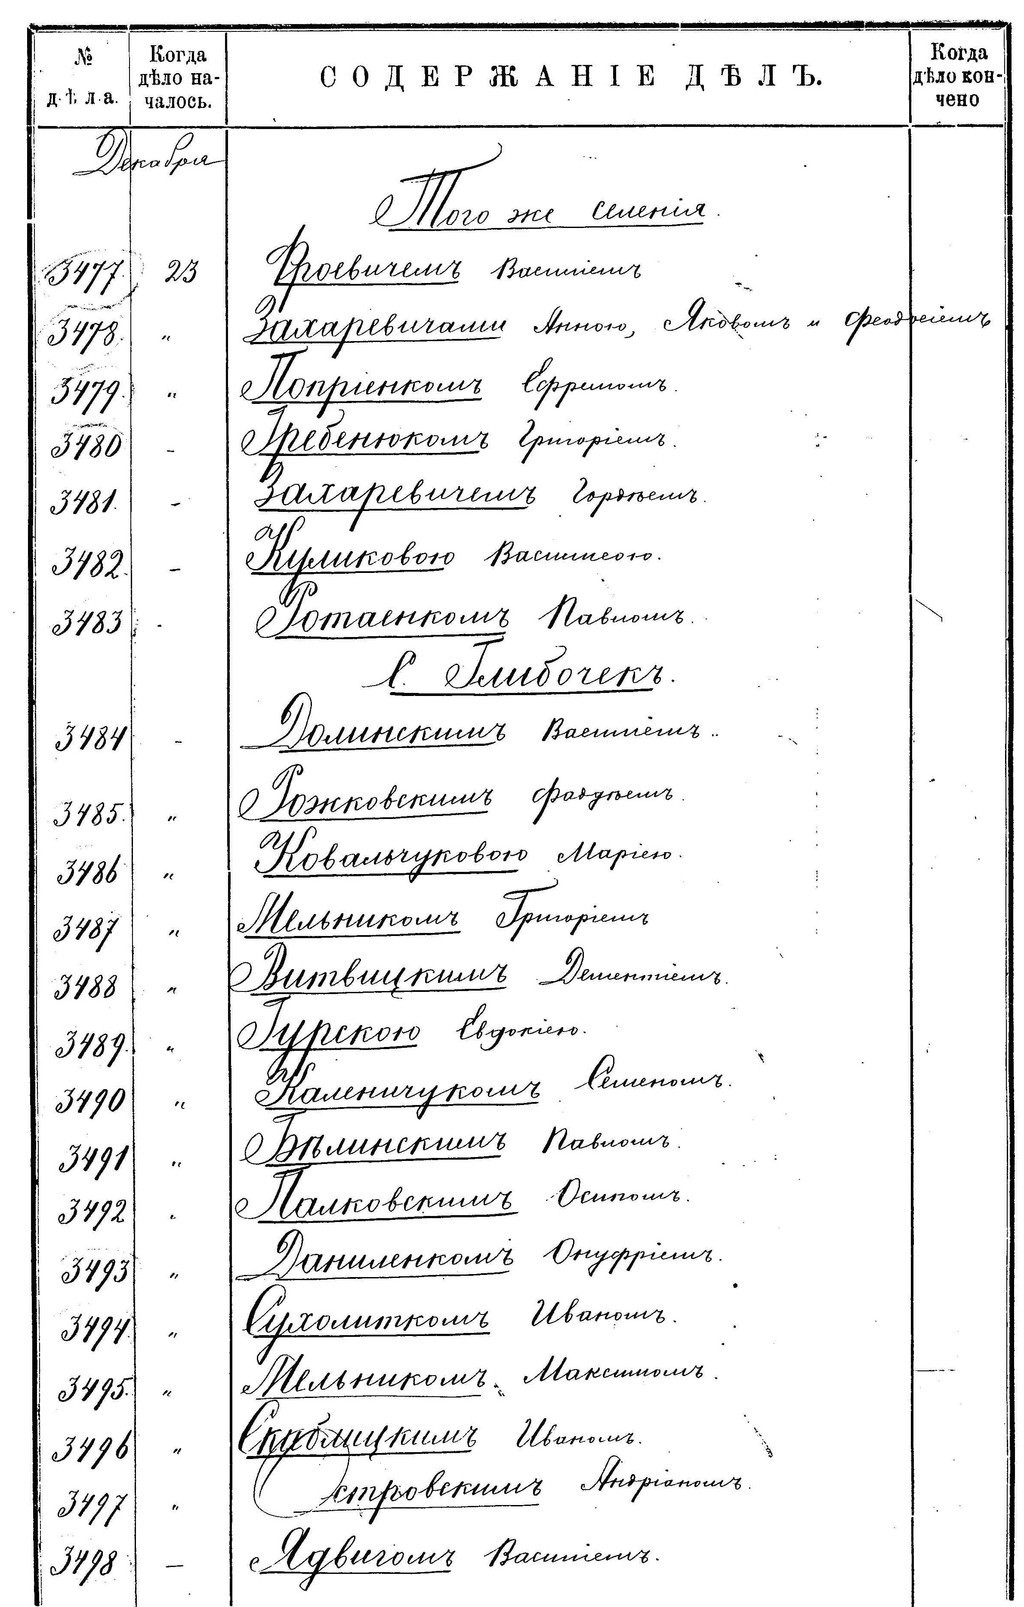 № дѣла.
Когда дѣло началось.
СОДЕРЖАНІЕ ДѢЛЪ.
Когда дѣло кончено
Декабря
Того же селенія.
3477. 23 Фроевичемъ Василіемъ
3478. „ Захаревичами Анною, Яковомъ и Феодосіемъ
3479. „ Попріенкомъ Ефремомъ.
3480 - Гребенюкомъ Григоріемъ.
3481. - Захаревичемъ Гордѣемъ.
3482. - Куликовою Василисою.
3483 - Ротаенкомъ Павломъ.
С. Глибочекъ.
3484 - Долинскимъ Василіемъ.
3485. „ Рожковскимъ Фадѣемъ.
3486 „ Ковальчуковою Маріею.
3487 „ Мельникомъ Григоріемъ
3488 „ Витвицкимъ Дементіемъ.
3489. „ Гурскою Евдокіею.
3490 „ Каленичукомъ Семеномъ.
3491 „ Бѣлинскимъ Павломъ.
3492 „ Палковскимъ Осипомъ.
3493 „ Даниленкомъ Онуфріемъ.
3494. „ Сухолиткомъ Иваномъ.
3495. „ Мельникомъ Максимомъ.
3496 „ Иваномъ.
3497 „ Островскимъ Андріаномъ.
3498 — Ядвигомъ Василіемъ.